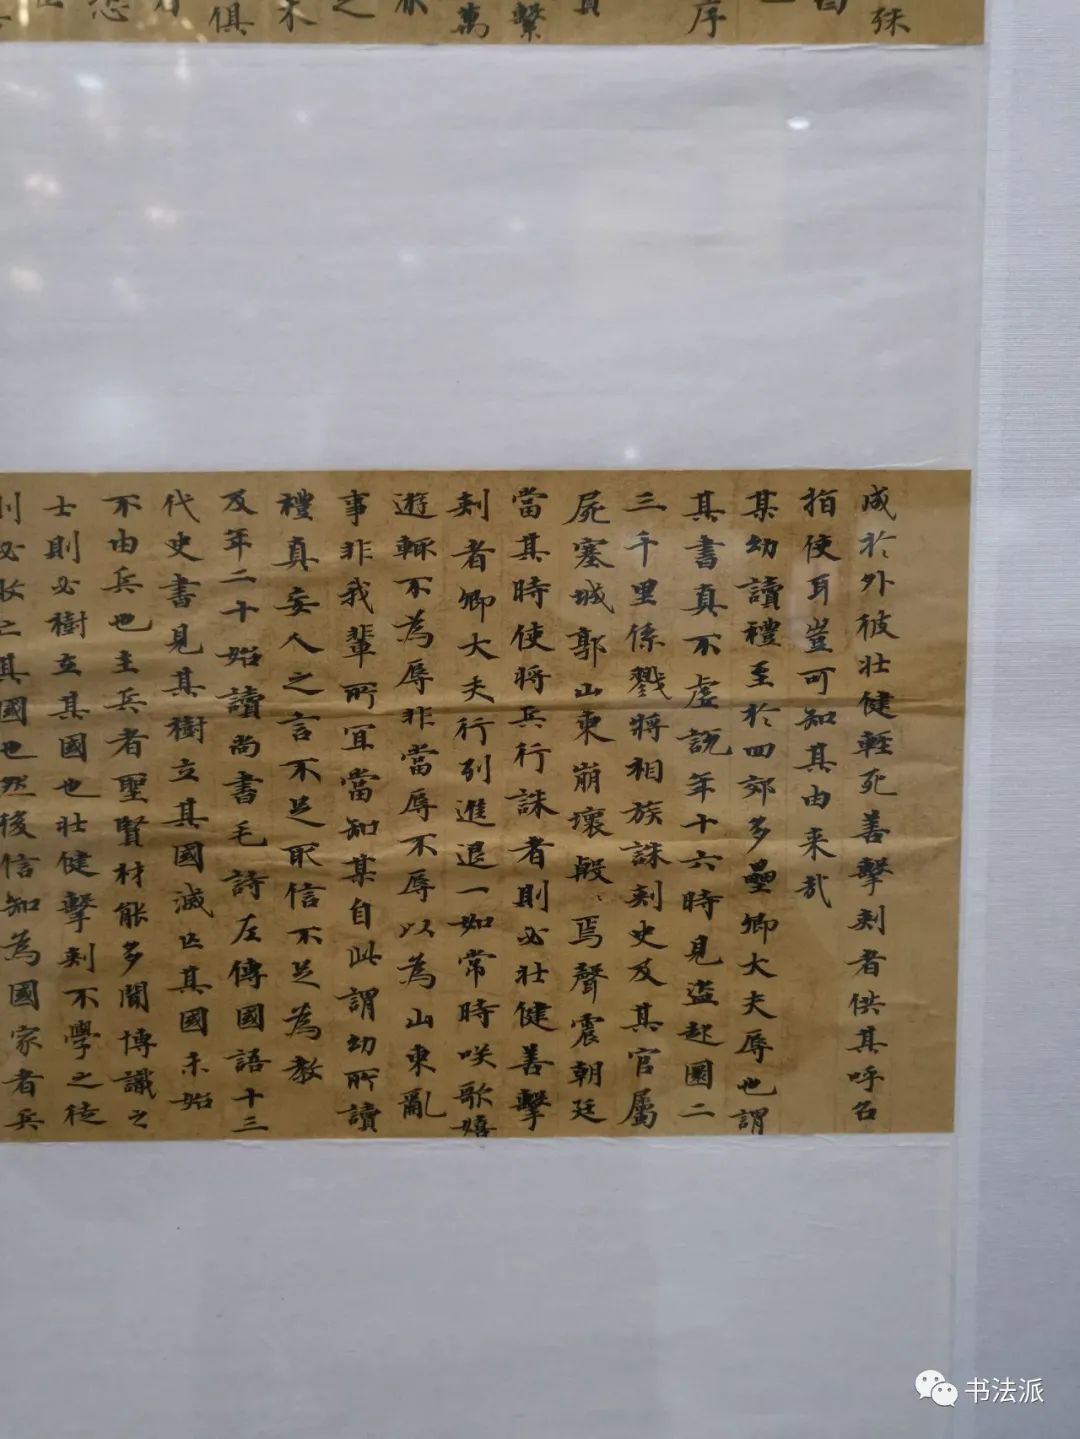 殊
序
繫
萬
之
木
俱
成於外彼壯健輕死善擊刾者供其呼名
指使耳豈可知其由来哉
某幼讀禮至於四郊多壘卿大夫辱也謂
其書真不虚説年十六時見盗起圜二
三千里係戮將相族誅刾史及其官屬
屍塞城郭山東崩壞殷〻焉聲震朝廷
當其時使將兵行誅者則必壯健善擊
刾者卿大夫行列進退一如常時咲歌嬉
遊輙不為辱非當辱不辱以為山東亂
事非我輩所宜當知某自此謂幼所讀
禮真妄人之言不足取信不足為教
及年二十始讀尚書毛詩左傳國語十三
代史書見其樹立其國滅亡其國未始
不由兵也主兵者聖賢材能多聞博識之
士則必樹立其國也壯健擊刾不學之徒
則必敗亡其國也然後信知為國家者兵
书法派